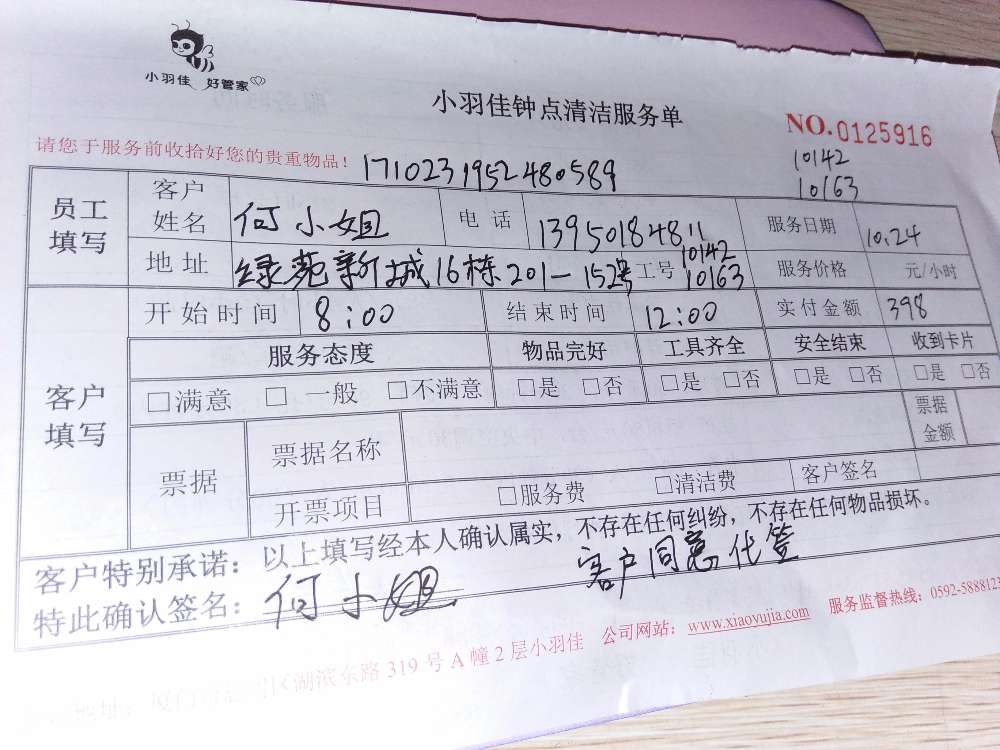 小羽佳 好管家
小羽佳钟点清洁服务单
NO.0125916
请您于服务前收拾好您的贵重物品！
1710231952480589
10142
10163
员工填写
客户姓名 何小姐 电话 13950184811 服务日期 10.24
地址 绿苑新城16栋201-152号 工号 10142 10163 服务价格 元/小时
客户填写
开始时间 8:00 结束时间 12:00 实付金额 398
服务态度 物品完好 工具齐全 安全结束 收到卡片
□满意 □一般 □不满意 □是 □否 □是 □否 □是 □否 □是 □否
票据 票据名称 票据金额
开票项目 □服务费 □清洁费 客户签名
客户特别承诺：以上填写经本人确认属实，不存在任何纠纷，不存在任何物品损坏。
特此确认签名：何小姐 客户同意代签
区湖滨东路319号A幢2层小羽佳 公司网站：www.xiaoyujia.com 服务监督热线：0592-5888123